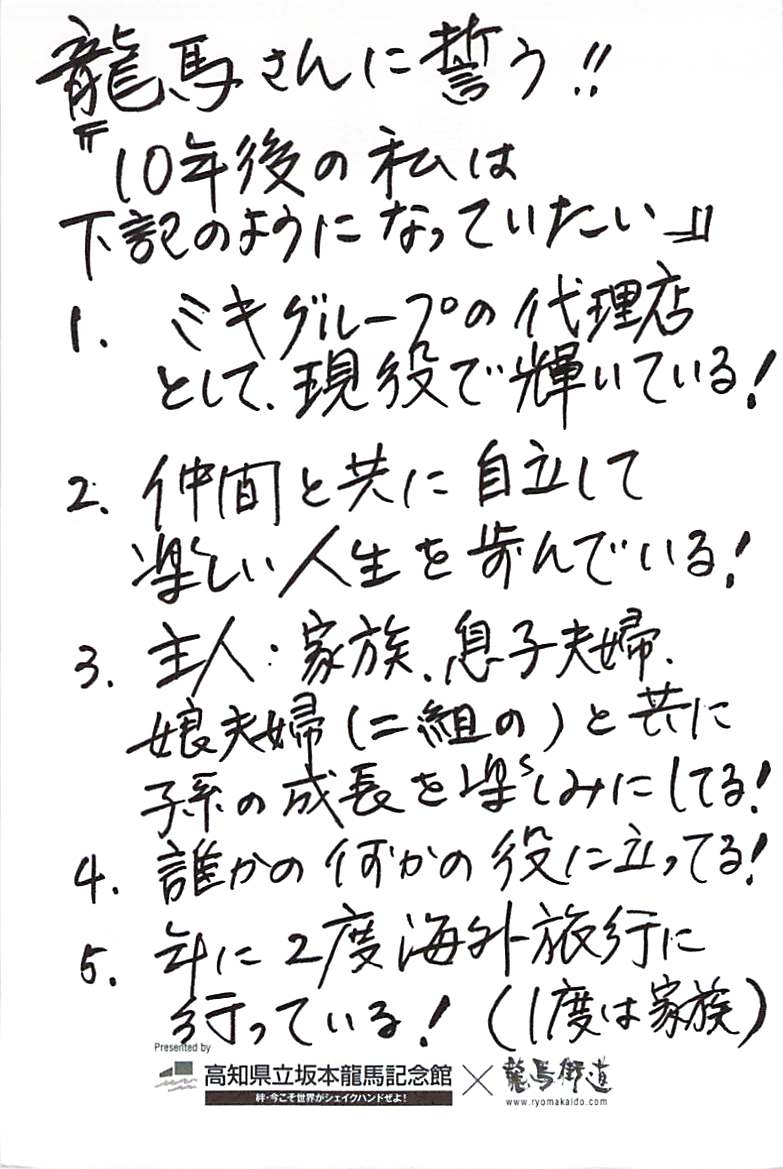 龍馬さんに誓う!!
〝10年後の私は
下記のようになっていたい〟
1. ミキグループの代理店
として、現役で輝いている!
2. 仲間と共に自立して
楽しい人生を歩んでいる!
3. 主人・家族、息子夫婦、
娘夫婦(二組の)と共に
子孫の成長を楽しみにしてる!
4. 誰かの何かの役に立ってる!
5. 年に2度海外旅行に
行っている!(1度は家族)
Presented by
高知県立坂本龍馬記念館 × 龍馬街道
絆・今こそ世界がシェイクハンドぜよ!
www.ryomakaido.com